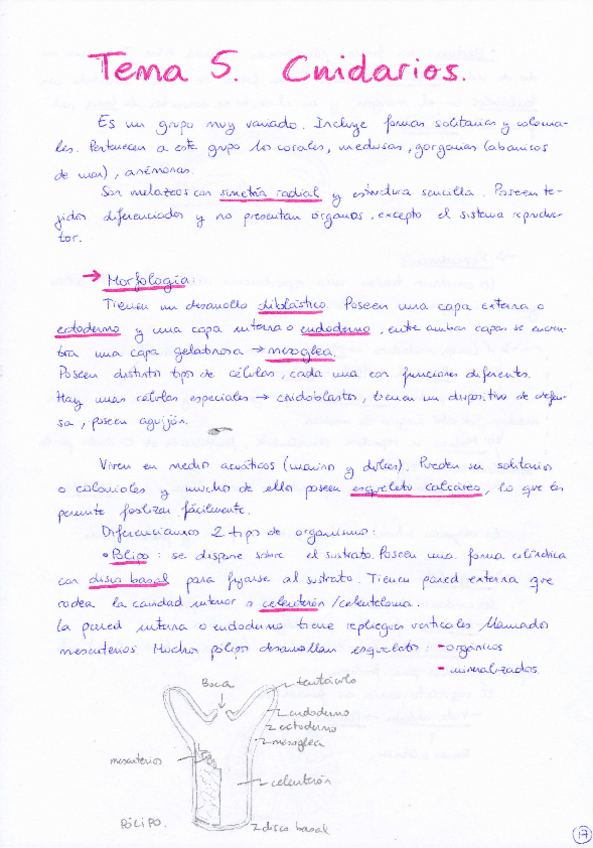 Tema 5. Cnidarios.
Es un grupo muy variado. Incluye formas solitarias y colonia-
les. Pertenecen a este grupo los corales, medusas, gorgonias (abanicos
de mar), anémonas.
Son metazoos con simetría radial y estructura sencilla. Poseen te-
jidos diferenciados y no presentan órganos, excepto el sistema reproduc-
tor.
→ Morfología
Tienen un desarrollo diblástico. Poseen una capa externa o
ectodermo y una capa interna o endodermo, entre ambas capas se encuen-
tra una capa gelatinosa → mesoglea.
Poseen distintos tipos de células, cada una con funciones diferentes.
Hay unas células especiales → cnidoblastos, tienen un dispositivo de defen-
sa, poseen aguijón.
Viven en medio acuáticos (marino y dulces). Pueden ser solitarios
o coloniales y mucho de ellos poseen esqueleto calcáreo, lo que les
permite fosilizar fácilmente.
Diferenciamos 2 tipos de organismo:
• Pólipo: se dispone sobre el sustrato. Poseen una forma cilíndrica
con disco basal para fijarse al sustrato. Tienen pared externa que
rodea la cavidad interior o celenterón/celenteloma.
La pared interna o endodermo tiene repliegues verticales llamados
mesenterios. Muchos pólipos desarrollan esqueletos: - orgánicos
- mineralizados.
Boca
tentáculo
endodermo
ectodermo
mesoglea
mesenterios
celenterón
PÓLIPO.
disco basal
17